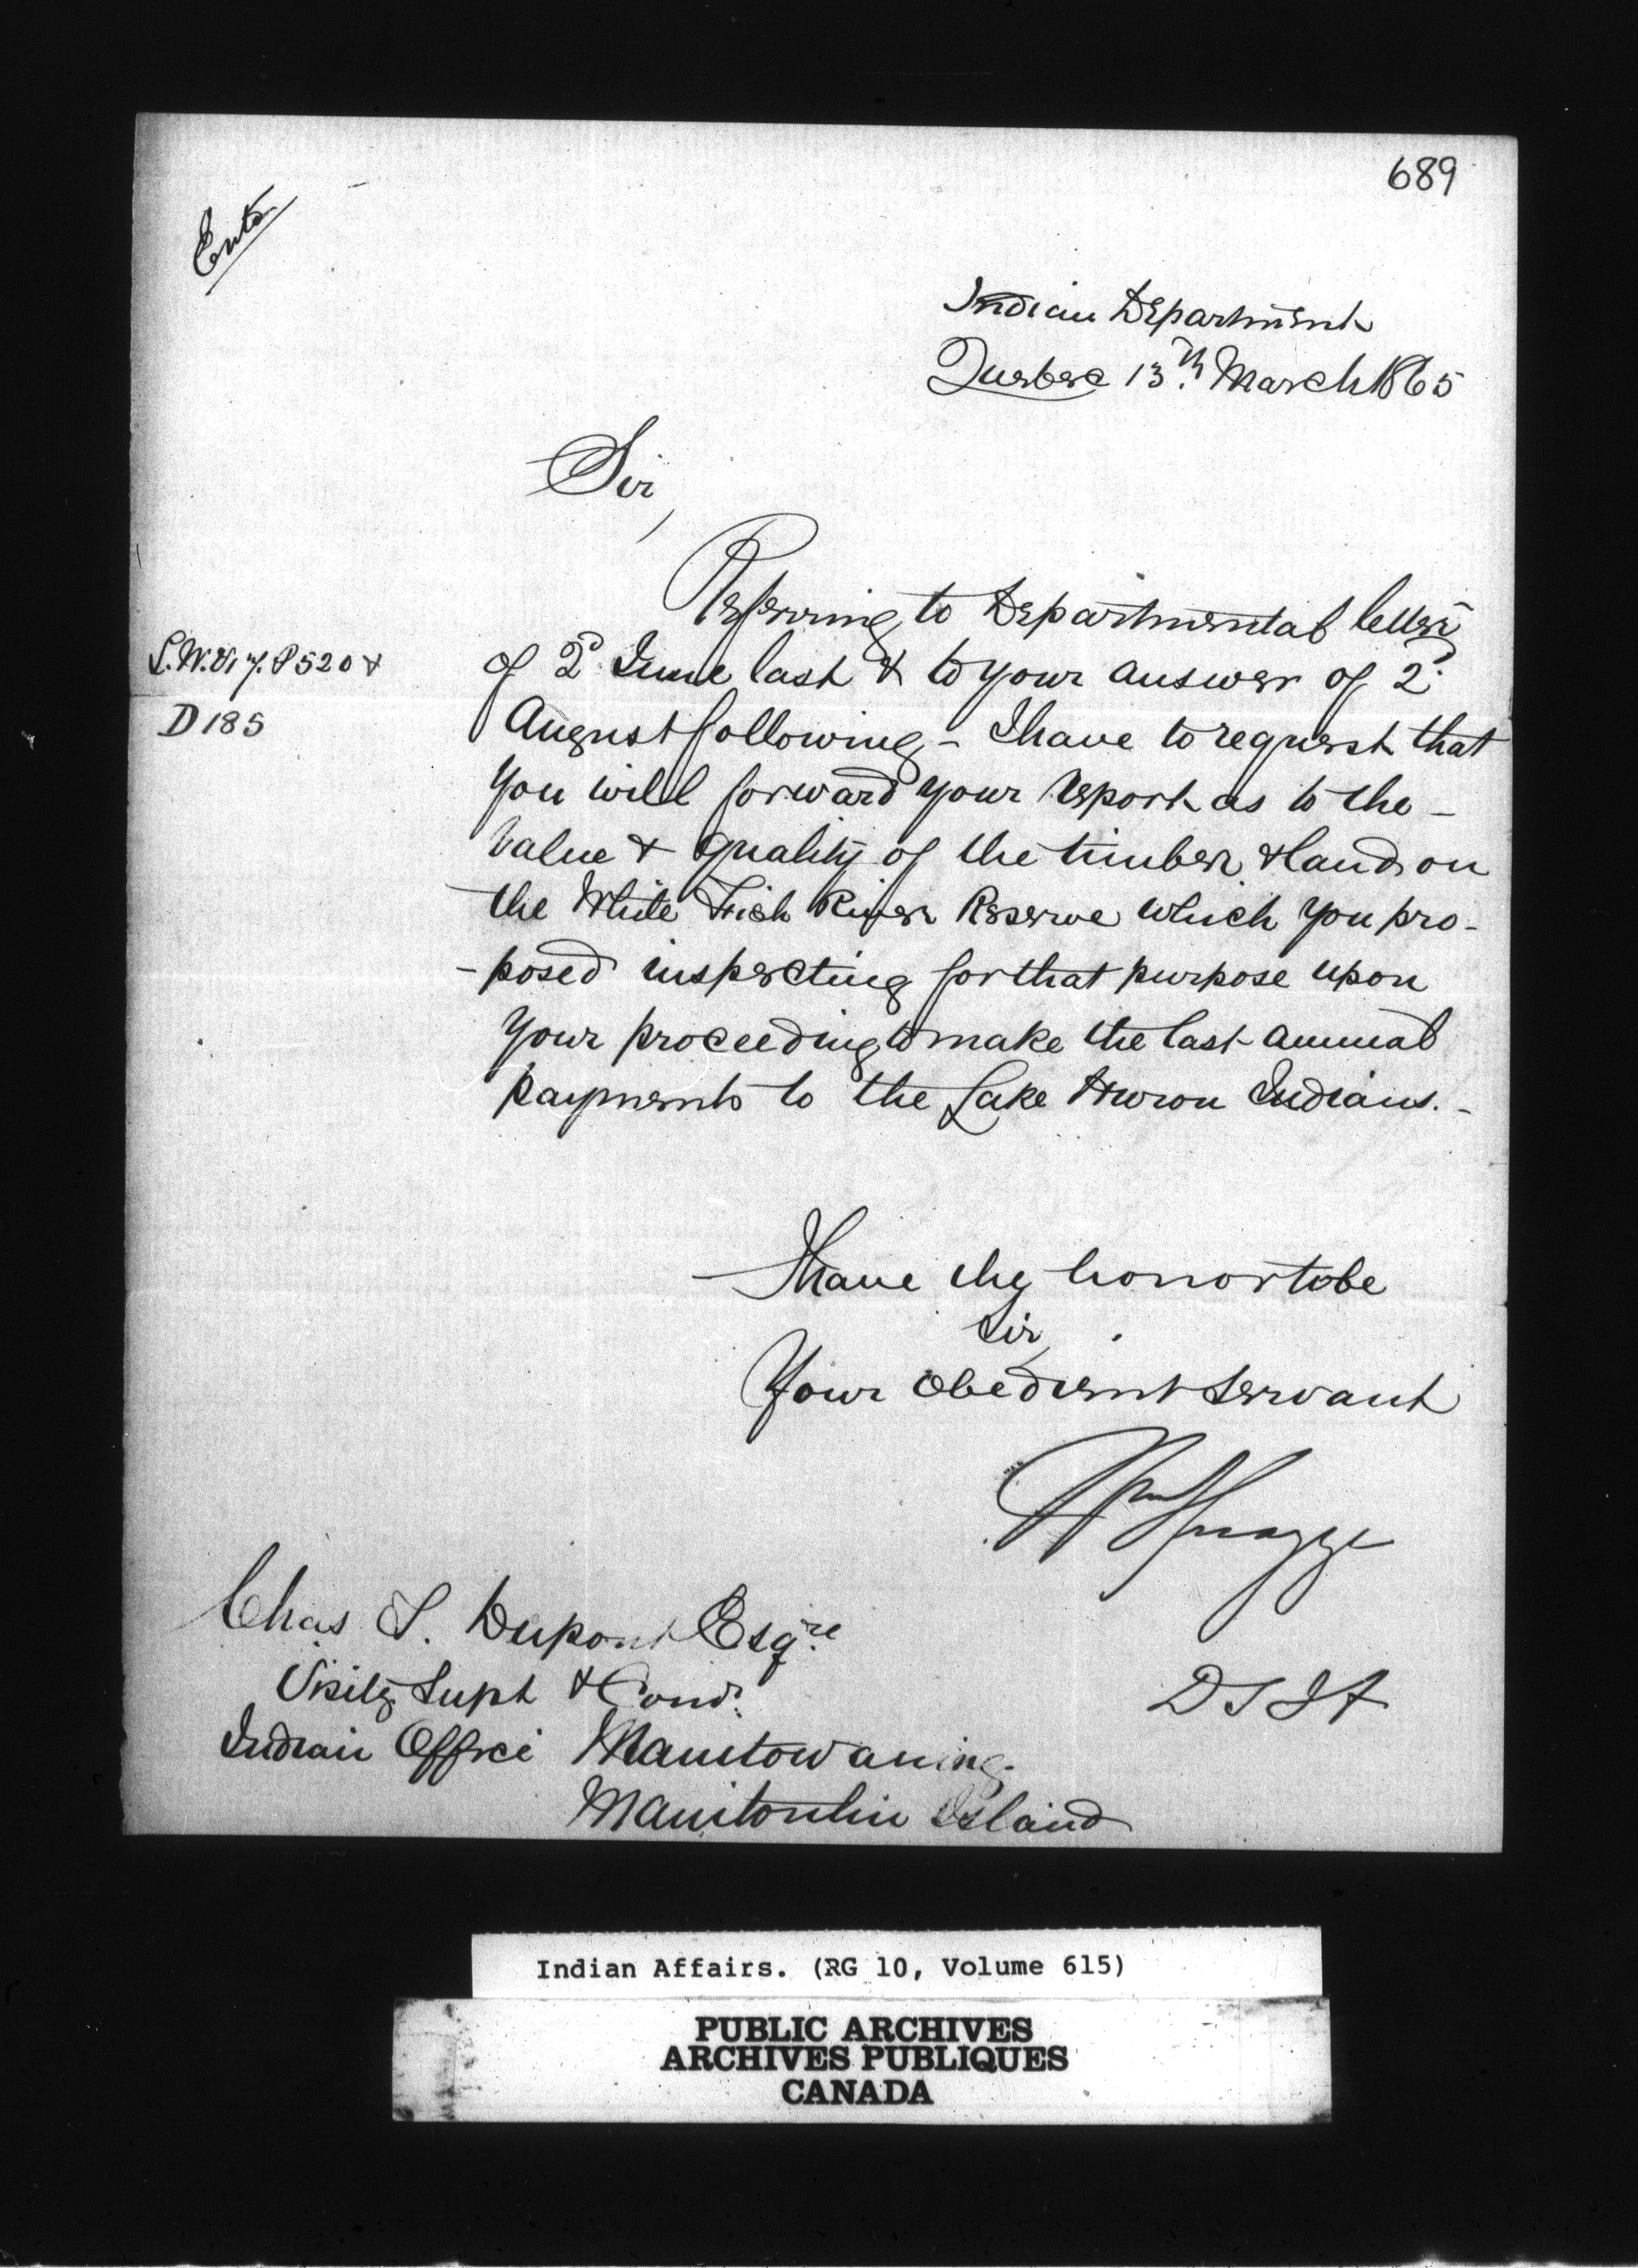 689
Entd
Indian Department
Quebec 13th March 1865
Sir,
Referring to Departmental letter
of 2d June last & to your answer of 2d
August following - I have to request that
you will forward your report as to the -
value & quality of the timber & land on
the White Fish River Reserve which you pro-
-posed inspecting for that purpose upon
your proceeding to make the last annual
payments to the Lake Huron Indians. -
P520 &
D185
I have the honor to be
Sir,
Your obedient Servant
W Spragge
D S I A
Chas T. Dupont Esqre
Visitg Supt & Comr.
Indian Office Manitowaning.
Manitoulin Island
Indian Affairs. (RG 10, Volume 615)
PUBLIC ARCHIVES
ARCHIVES PUBLIQUES
CANADA